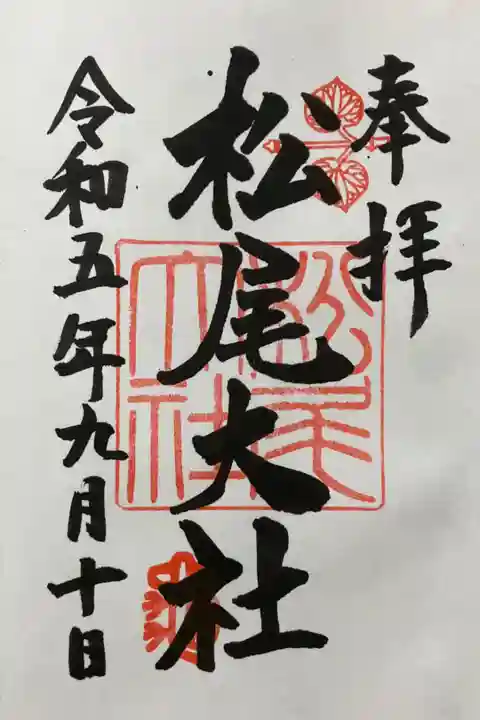 奉拝
松尾大社
令和五年九月十日
松尾
大社